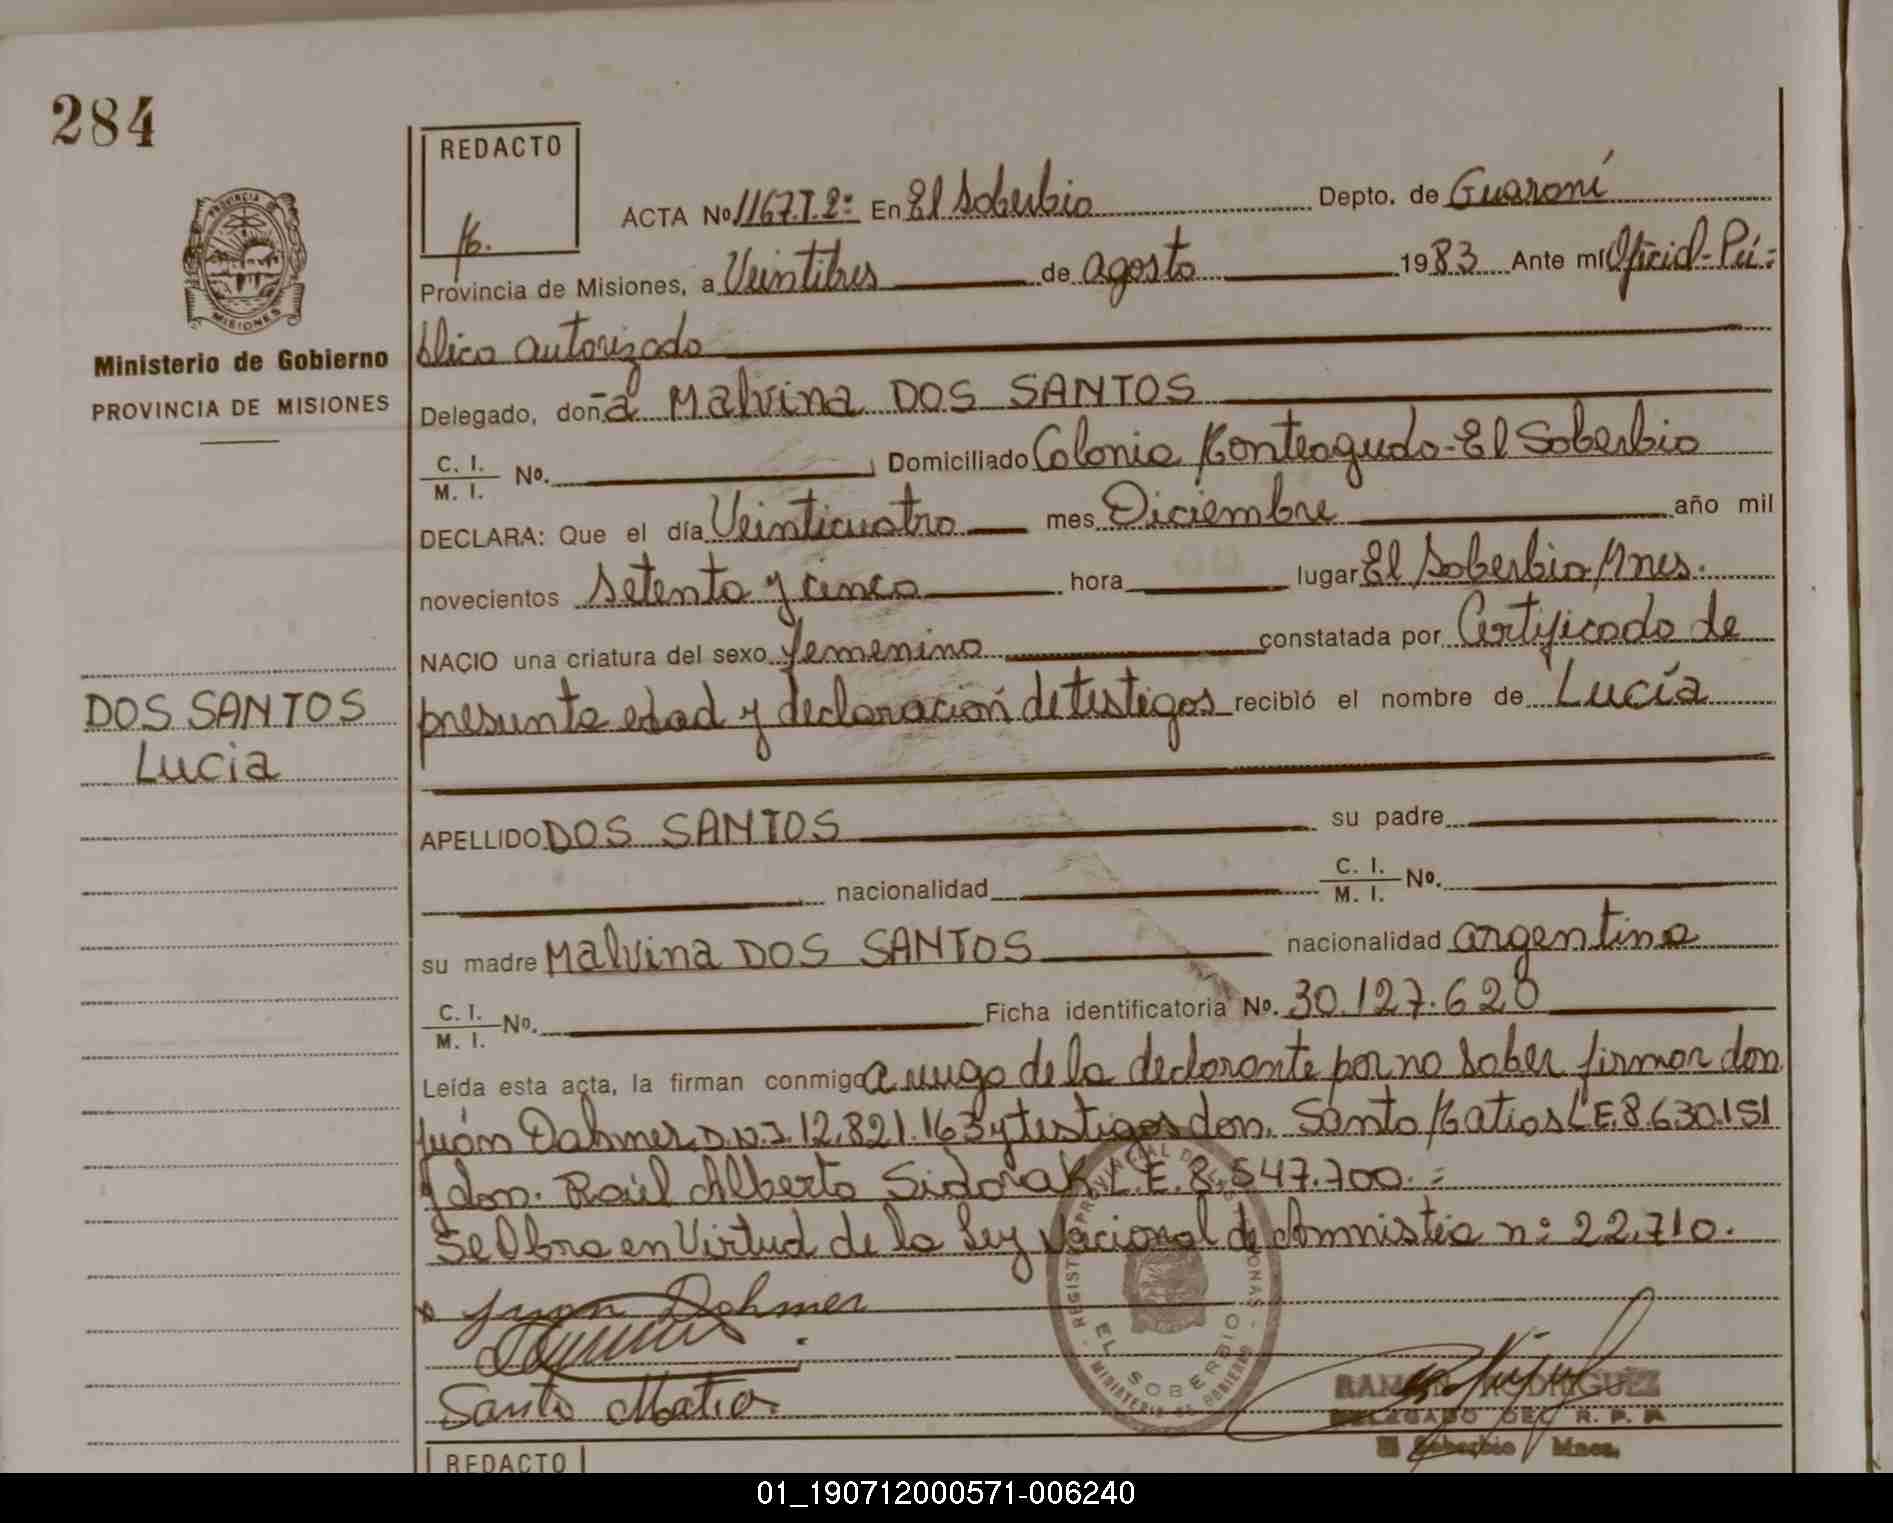 284
REDACTO
ACTA No 1167.T.2º En El Soberbio Depto. de Guaraní
Provincia de Misiones, a Veintitres de agosto 1983 Ante mi Oficial Pú=
blico autorizado
PROVINCIA DE
MISIONES
Ministerio de Gobierno
PROVINCIA DE MISIONES
Delegado, don a Malvina DOS SANTOS
C. I.
M. I. No. Domiciliado Colonia Monteagudo-El Soberbio
DECLARA: Que el día Veinticuatro mes Diciembre año mil
novecientos setenta y cinco hora lugar El Soberbio Mnes.
NACIO una criatura del sexo femenino constatada por Certificado de
presunta edad y declaración de testigos recibió el nombre de Lucía
DOS SANTOS
Lucia
APELLIDO DOS SANTOS su padre
nacionalidad C. I.
M. I. No.
su madre Malvina DOS SANTOS nacionalidad argentina
C. I.
M. I. No. Ficha identificatoria No. 30.127.628
Leída esta acta, la firman conmigo a ruego de la declarante por no saber firmar don
Juán Dahmer D.N.I. 12.821.163 y testigos don. Santo Matios L.E. 8.630.151
y don. Raúl Alberto Sidorak L.E. 8.547.700.=
Se Labra en Virtud de la Ley Nacional de Amnistia nº 22.710.
Juan Dahmer
Santo Matio
REGISTRO PROVINCIAL DE LAS PERSONAS
EL SOBERBIO
MINISTERIO DE GOBIERNO
RAMON RODRIGUEZ
DELEGADO DEL R. P. P.
El Soberbio Mnes.
REDACTO
01_190712000571-006240